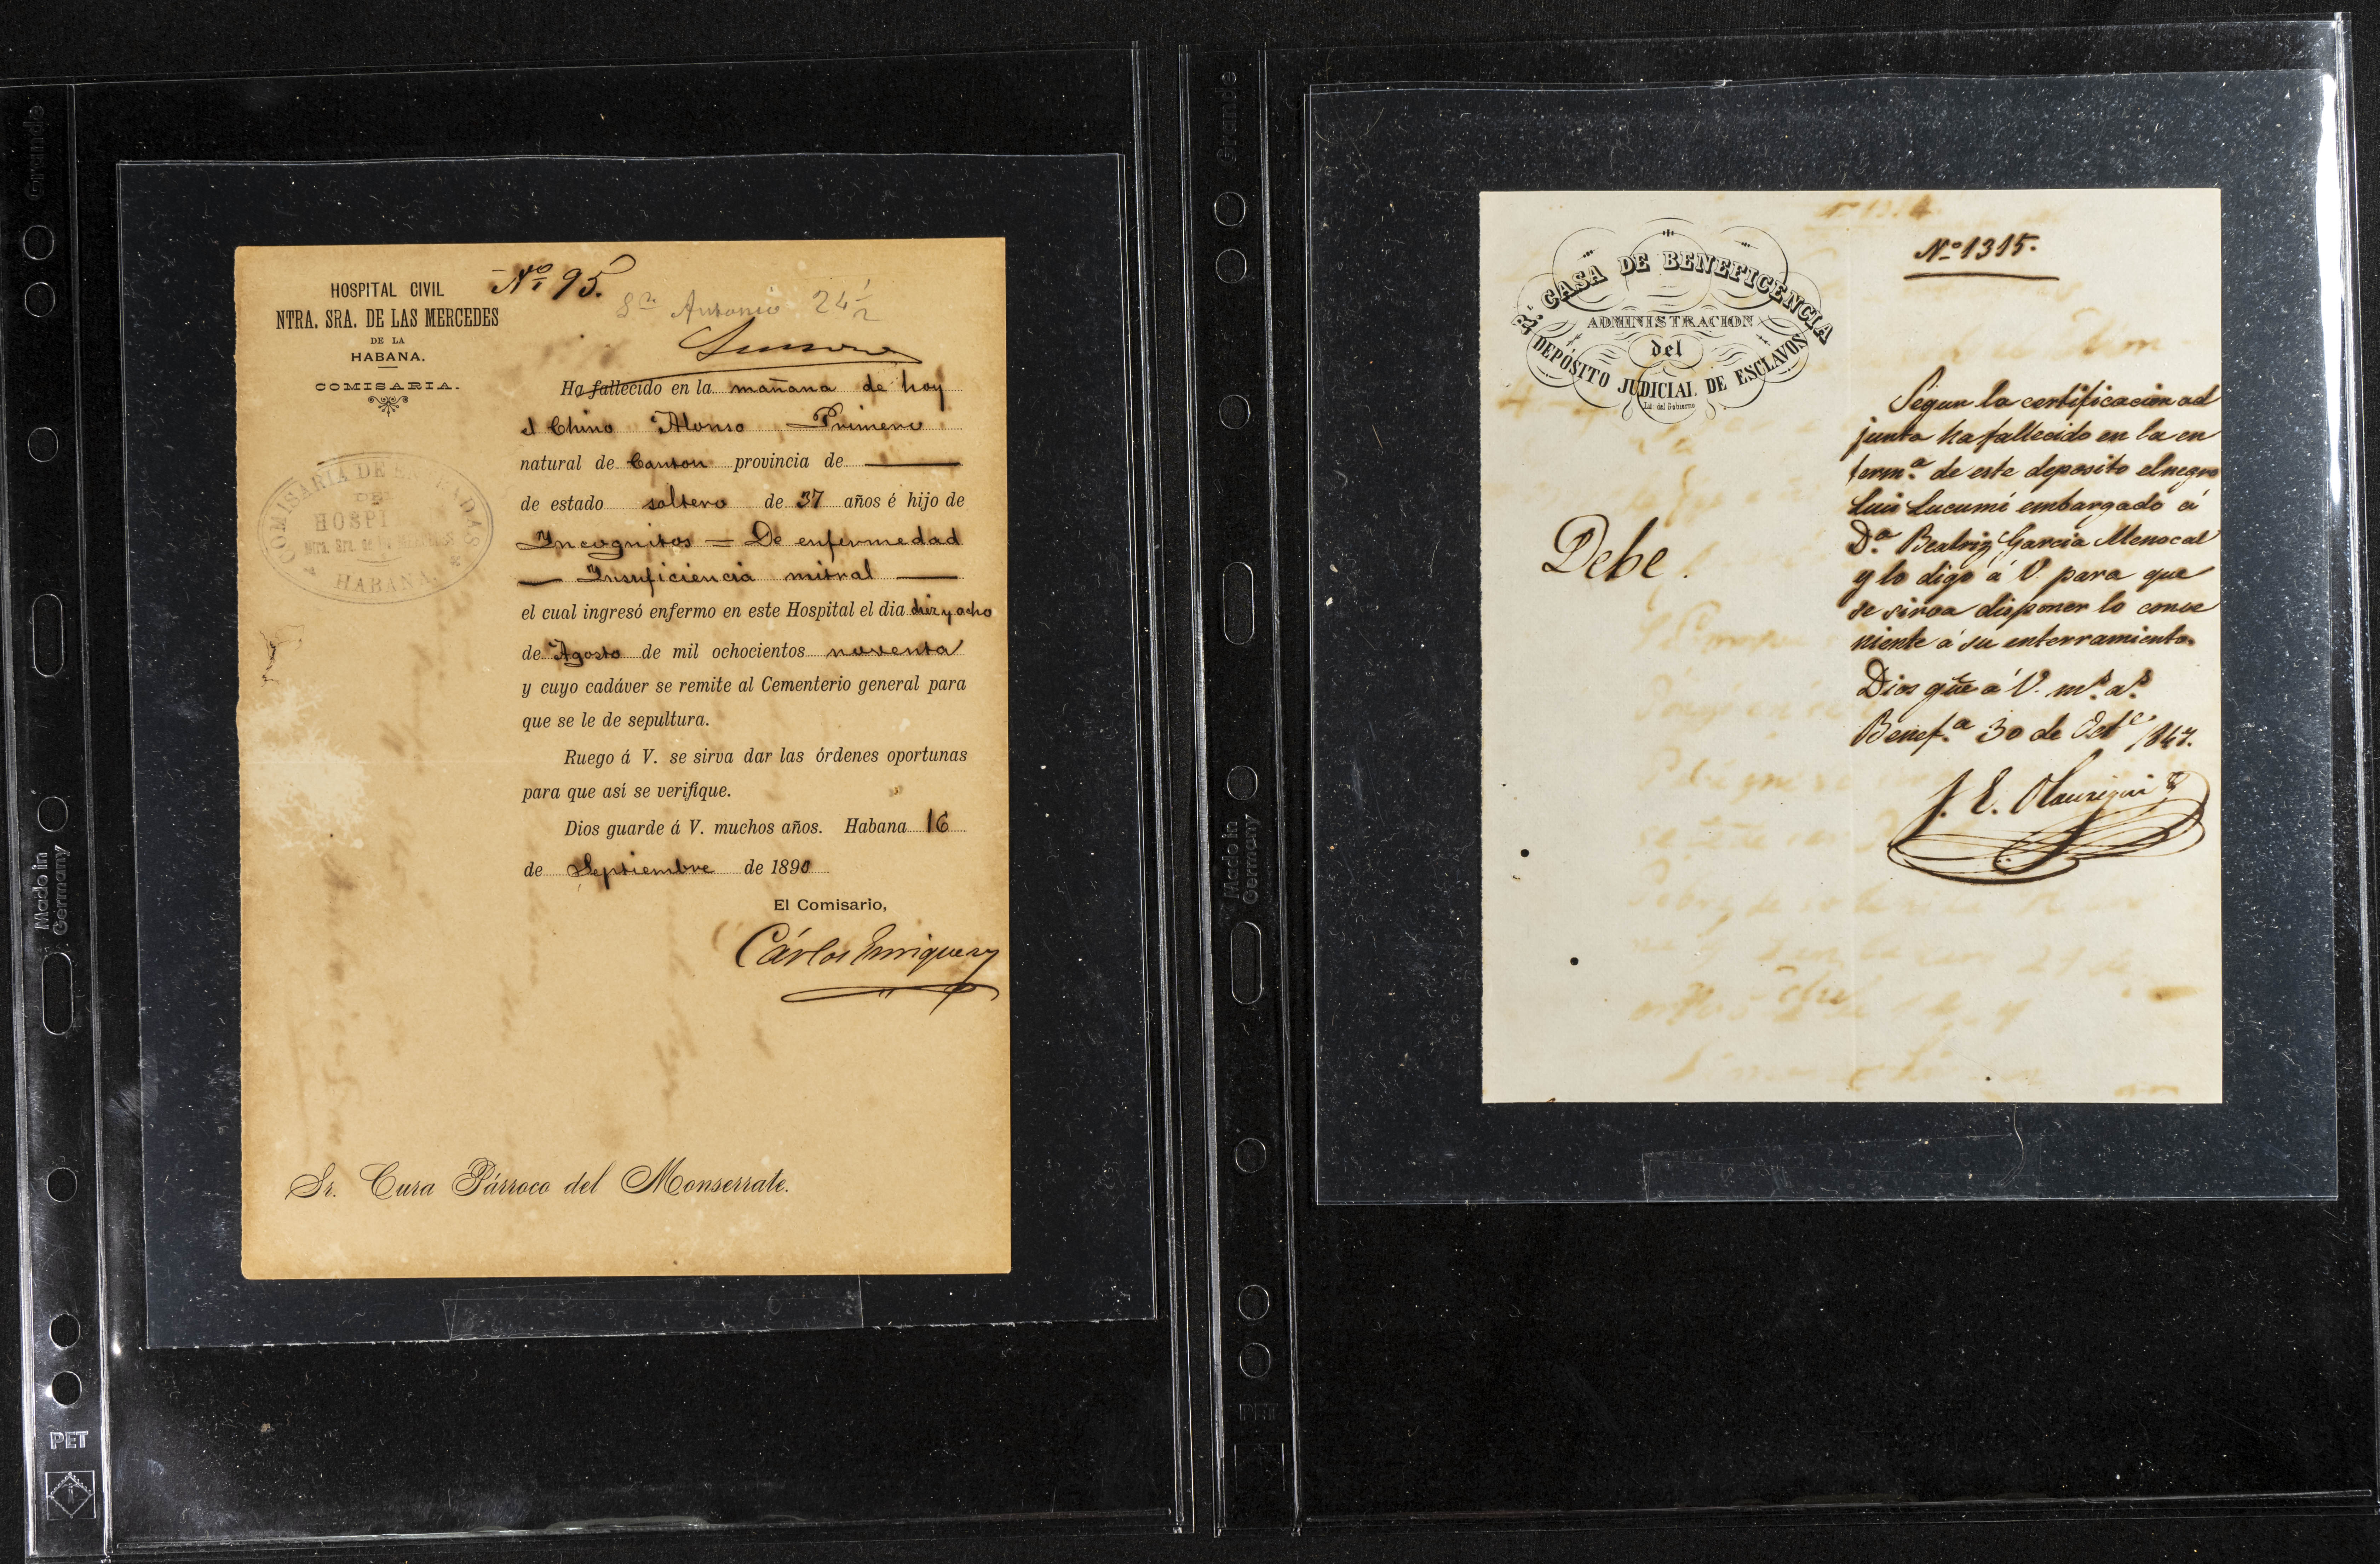 Grande
Made in
Germany
PET
HOSPITAL CIVIL
NTRA. SRA. DE LAS MERCEDES
DE LA
HABANA.
COMISARIA.
Nº 95.
Sn Antonio 24 1/2
Ha fallecido en la mañana de hoy
el Chino Alonso Primero
natural de Canton provincia de
de estado soltero de 37 años é hijo de
Incognitos = De enfermedad
Insuficiencia mitral
el cual ingresó enfermo en este Hospital el dia diez y ocho
de Agosto de mil ochocientos noventa
y cuyo cadáver se remite al Cementerio general para
que se le de sepultura.
Ruego á V. se sirva dar las órdenes oportunas
para que así se verifique.
Dios guarde á V. muchos años. Habana 16
de Septiembre de 1890
El Comisario,
Cárlos Enriquez
COMISARIA DE ENTRADAS
DEL
HOSPI
Ntra. Sra. de
HABANA
Sr. Cura Párroco del Monserrate.
Grande
Made in
Germany
PET
Nº 1315.
Rl. CASA DE BENEFICENCIA
ADMINISTRACION
del
DEPÓSITO JUDICIAL DE ESCLAVOS
Lit. del Gobierno
Debe.
Segun la certificacion ad
junta ha fallecido en la en
ferm.a de este deposito el negro
Luis Lucumí embargado á
D.a Beatriz Garcia Menocal
y lo digo á V. para que
se sirva disponer lo conve
niente á su enterramiento.
Dios gūe á V. m.s a.s
Benef.a 30 de Oct.e 1867.
J. E. Olauregui